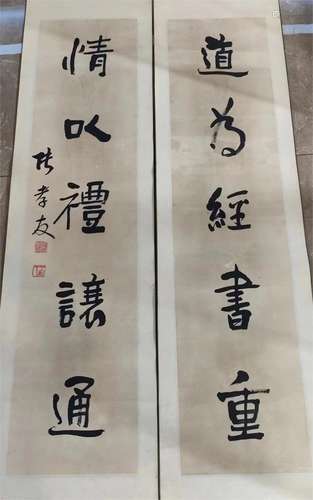 道為經書重
情以禮讓通
張孝友